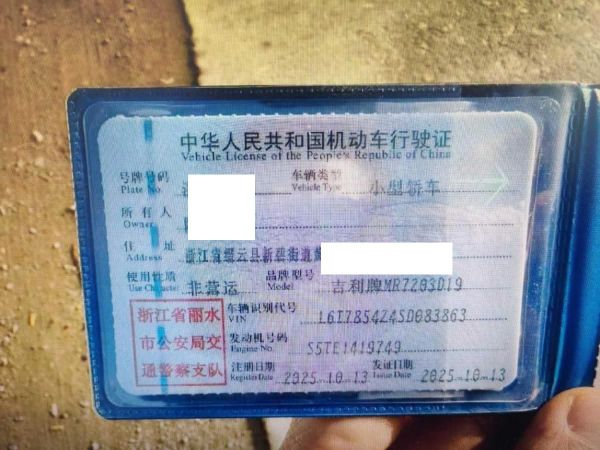 中华人民共和国机动车行驶证
Vehicle License of the People's Republic of China
号牌号码 车辆类型 小型轿车
Plate No. Vehicle Type
所有人
Owner
住址 浙江省缙云县新碧街道
Address
使用性质 非营运 品牌型号 吉利牌MR7203D19
Use Character Model
浙江省丽水 车辆识别代号 L6T7854Z4SD083863
VIN
市公安局交 发动机号码 S5TE1419749
Engine No.
通警察支队 注册日期 2025-10-13 发证日期 2025-10-13
Register Date Issue Date